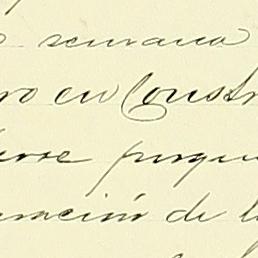 semana
ro en Constr
erse porque
uración de l